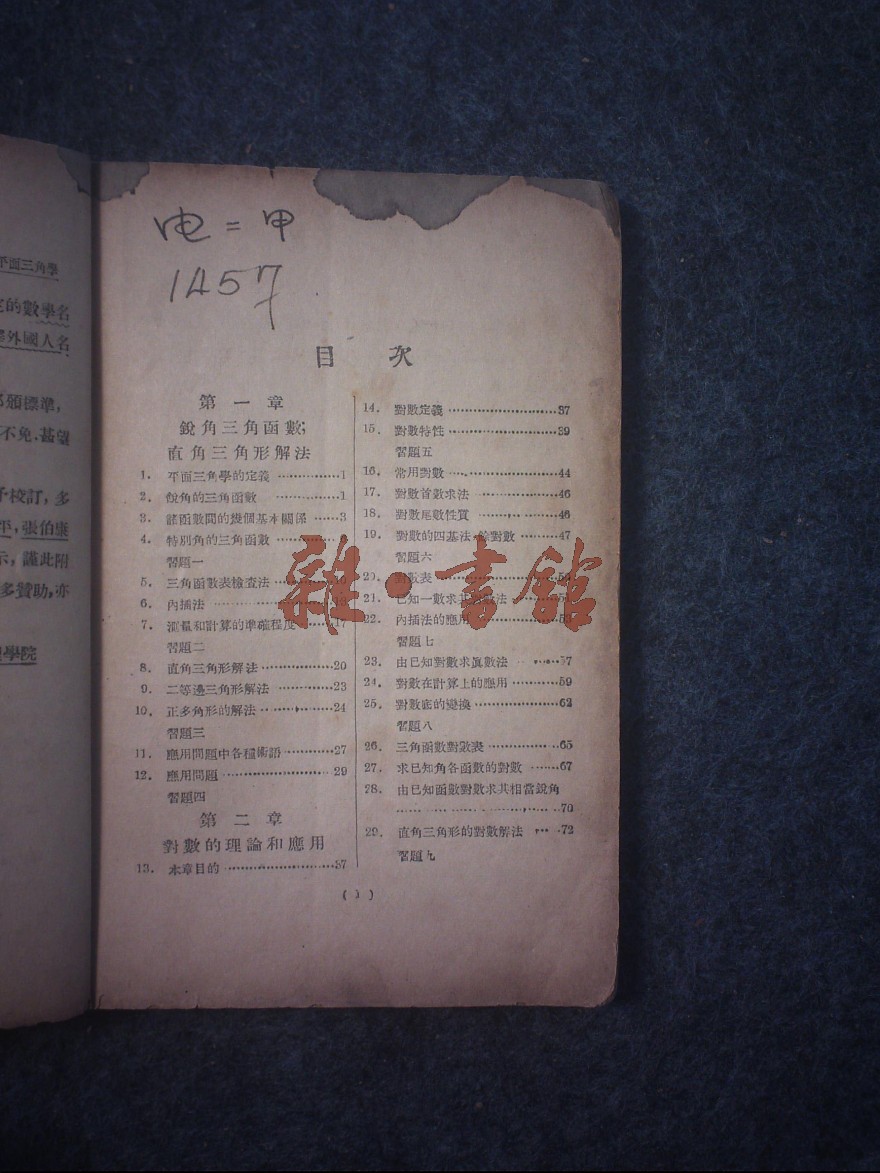 平面三角學
的數學名
外國人名
頒標準,
不免,甚望
予校訂,多
平,張伯康
示,謹此附
多贊助,亦
學院
电=甲
1457
目 次
第一章
銳角三角函數;
直角三角形解法
1. 平面三角學的定義 …………1
2. 銳角的三角函數 …………1
3. 諸函數間的幾個基本關係 ……3
4. 特別角的三角函數 …………
習題一
5. 三角函數表檢查法 …………
6. 內插法
7. 測量和計算的準確程度 ……17
習題二
8. 直角三角形解法 …………20
9. 二等邊三角形解法 …………23
10. 正多角形的解法 …………24
習題三
11. 應用問題中各種術語 …………27
12. 應用問題 …………29
習題四
第二章
對數的理論和應用
13. 本章目的 …………37
14. 對數定義 …………37
15. 對數特性 …………39
習題五
16. 常用對數 …………44
17. 對數首數求法 …………46
18. 對數尾數性質 …………46
19. 對數的四基法,餘對數 ……47
習題六
20. 對數表 …………
21. 已知一數求其對數法 ……
22. 內插法的應用 …………
習題七
23. 由已知對數求眞數法 ……57
24. 對數在計算上的應用 ……59
25. 對數底的變換 …………62
習題八
26. 三角函數對數表 …………65
27. 求已知角各函數的對數 ……67
28. 由已知函數對數求其相當銳角
…………70
29. 直角三角形的對數解法 ……72
習題九
雜·書館